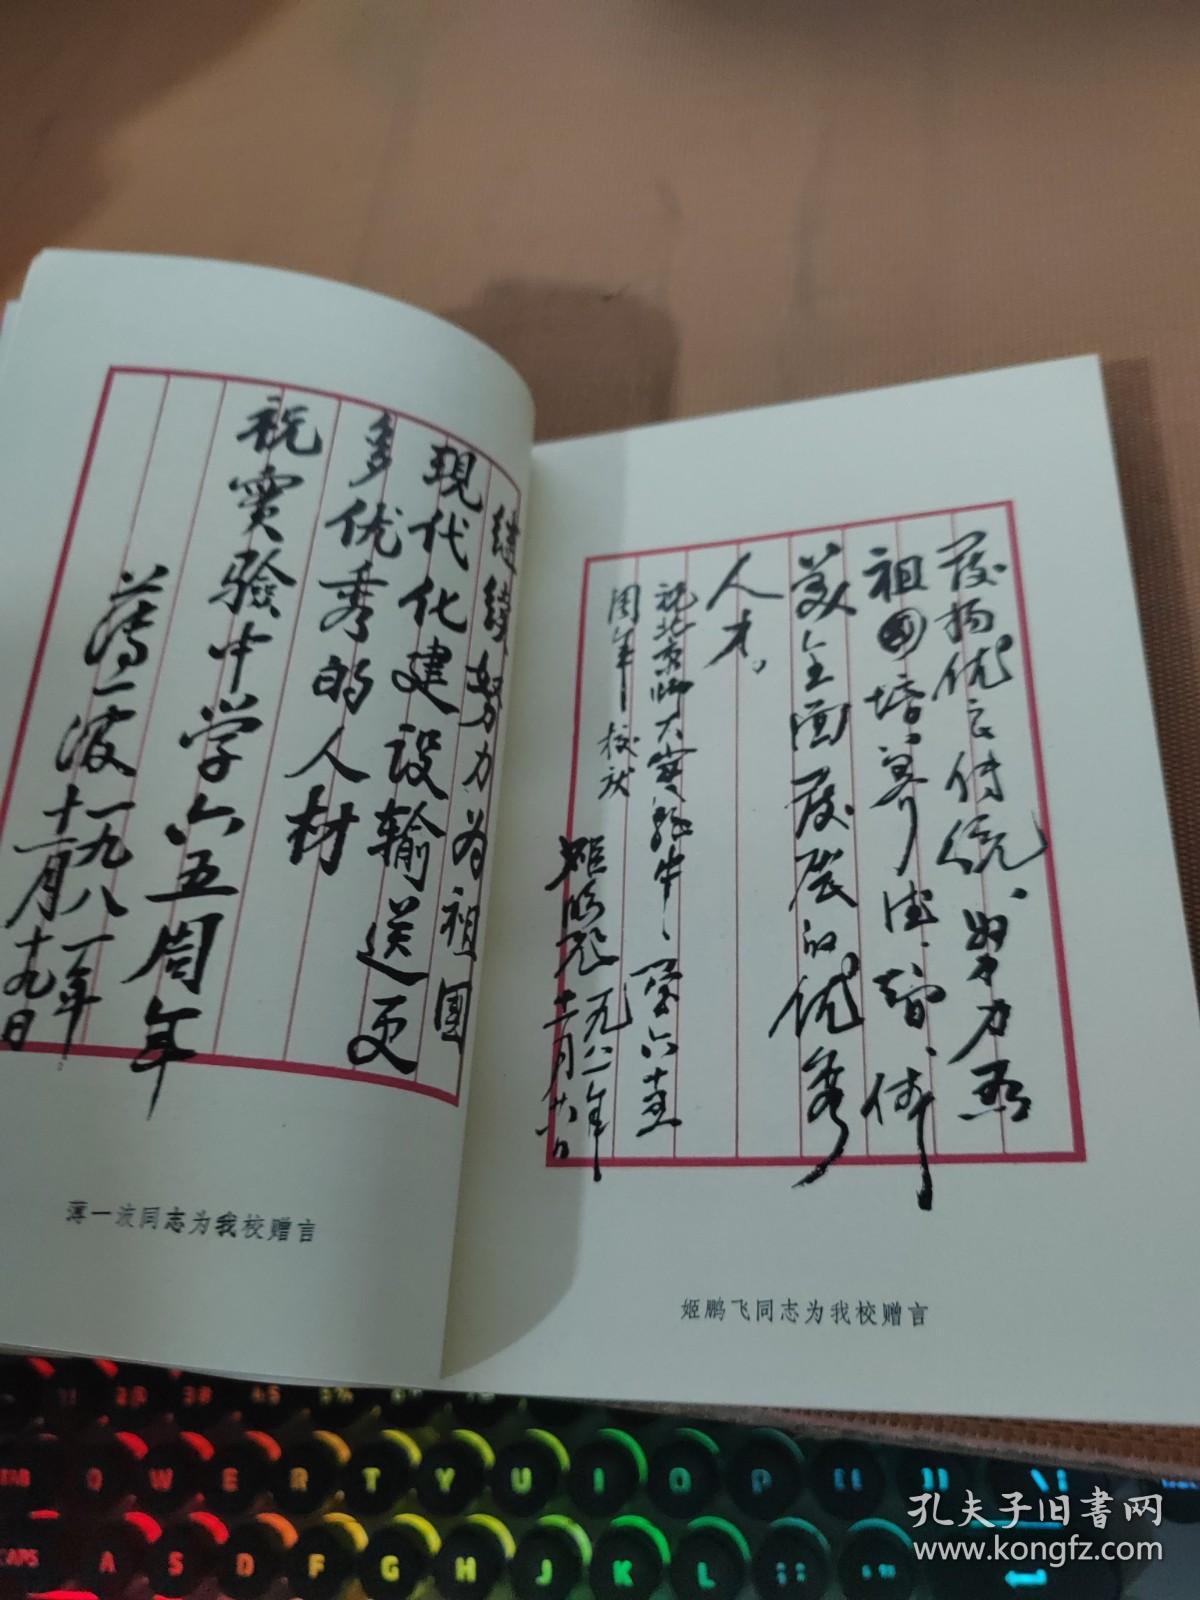 继续努力为祖国
现代化建设输送更
多优秀的人材
祝实驗中学六五周年
薄一波一九八一年
十一月十九日
薄一波同志为我校赠言
发扬优良传统、努力为
祖国培养德、智、体
美全面发展的优秀
人才。
祝北京师大实验中学六十五
周年校庆
姬鹏飞一九八一年
姬鹏飞同志为我校赠言
TAB Q W E R T Y U I O P [ ] \|
CAPS A S D F G H J K L
孔夫子旧书网
www.kongfz.com